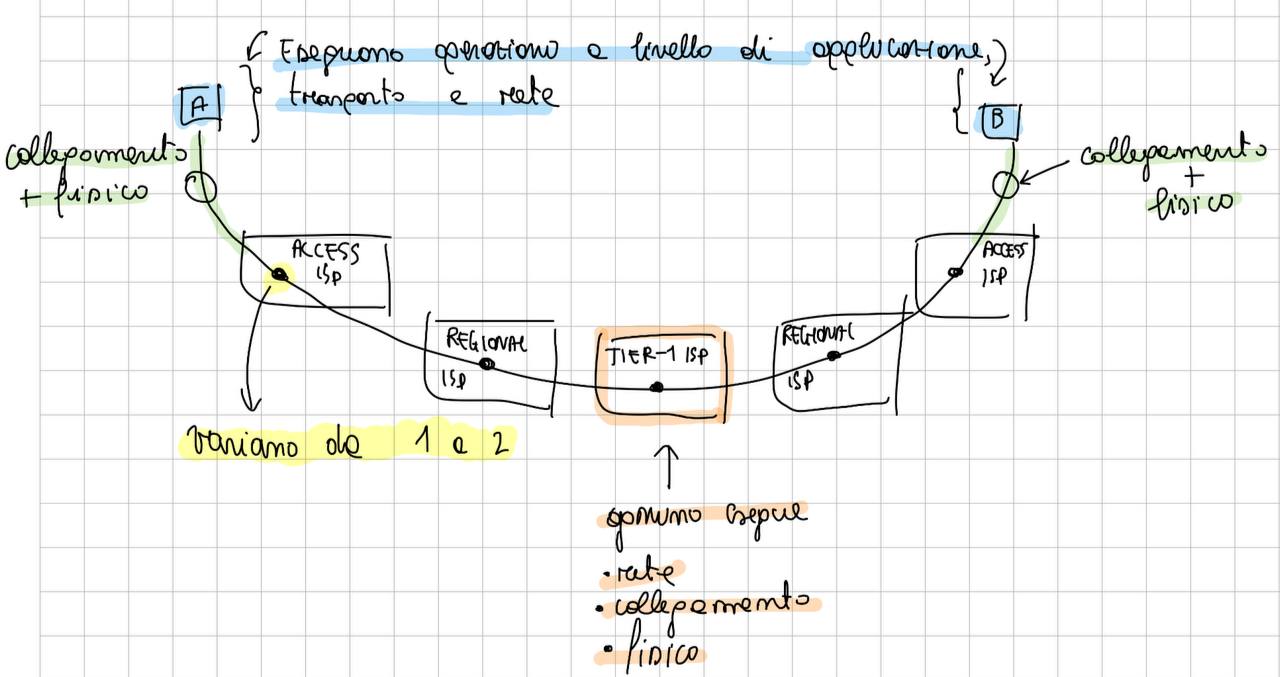 Eseguono operazioni a livello di applicazione,
trasporto e rete
A
B
collegamento
+ fisico
collegamento
+
fisico
ACCESS
ISP
ACCESS
ISP
REGIONAL
ISP
TIER-1 ISP
REGIONAL
ISP
variano da 1 a 2
ognuno esegue
• rete
• collegamento
• fisico